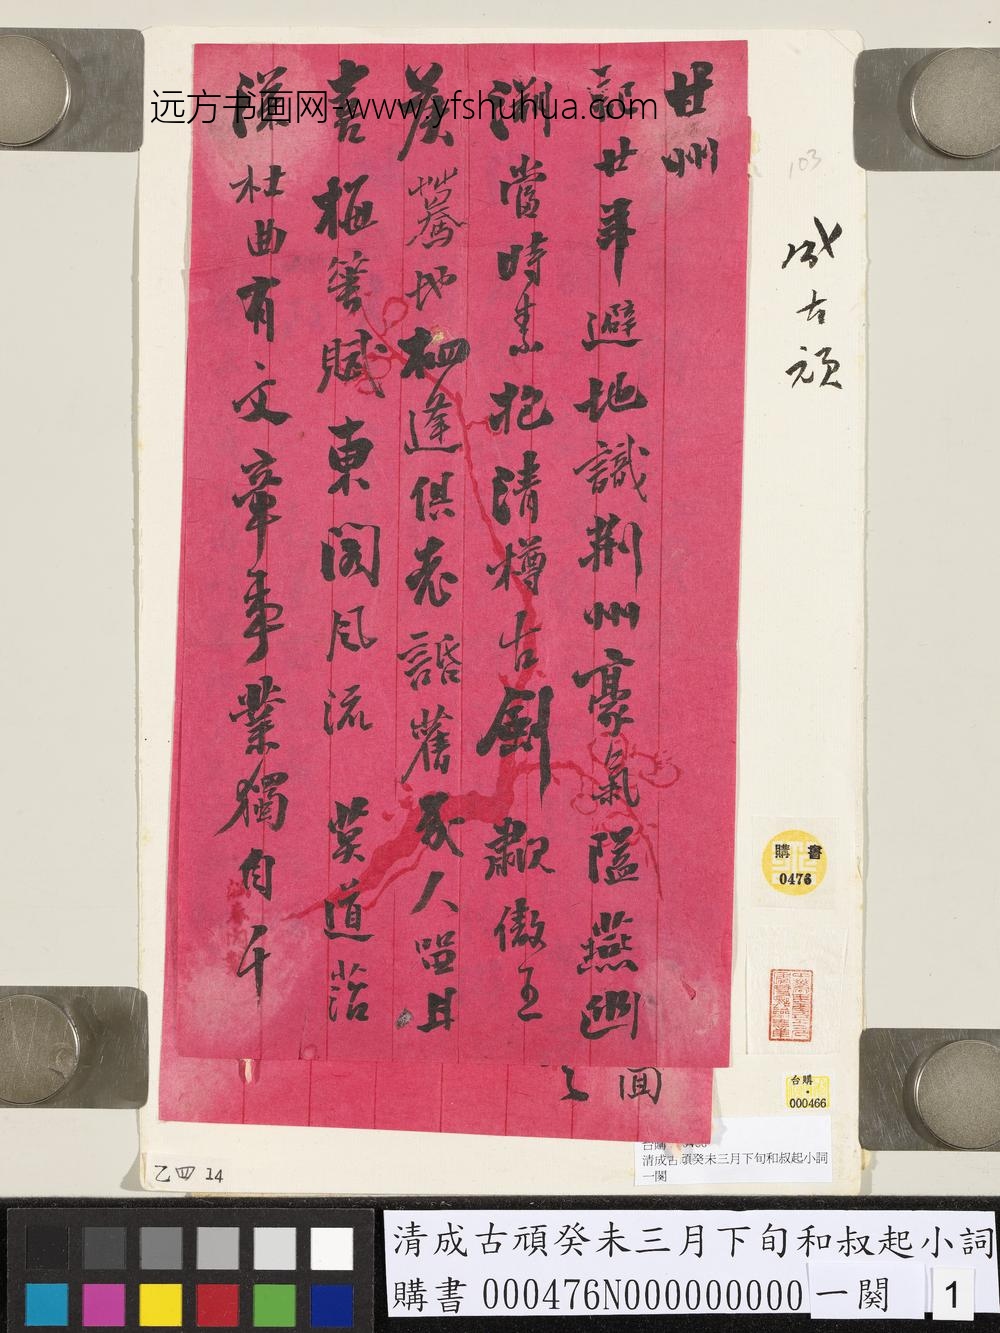 远方书画网-www.yfshuhua.com
甘州
廿年避地識荆州豪氣隘燕幽
溯當時素抱清樽古劍歗傲王
矦驀地栖逢俱老話舊及人畱且
喜梅箋賦東閣風流 莫道萍
蹤杜曲有文章事業獨自千
103
成古頑
購書
0476
台購
000466
清成古頑癸未三月下旬和叔起小詞
一闋
乙四 14
清成古頑癸未三月下旬和叔起小詞
購書 000476N000000000 一闋 1